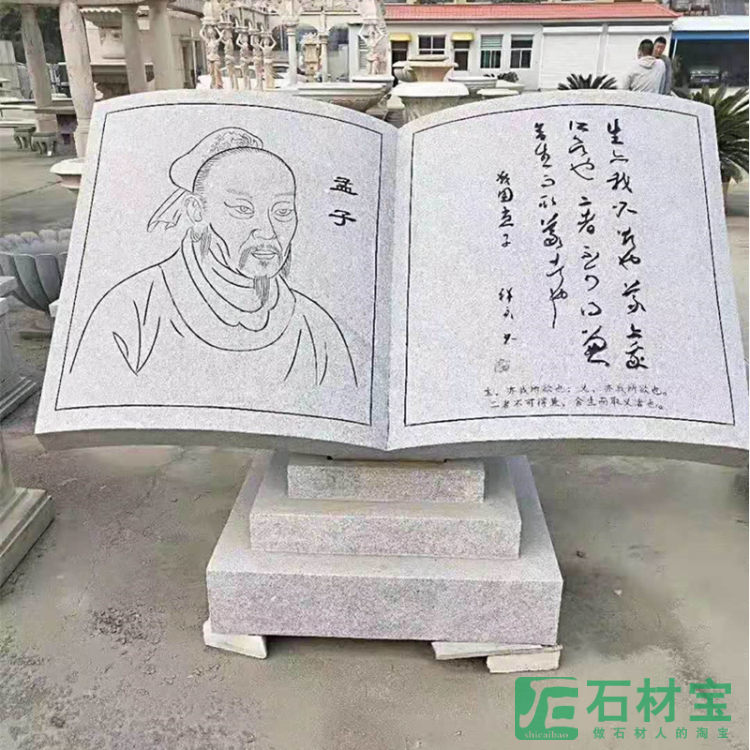 孟子
生亦我所欲也义亦我
所欲也二者不可得兼
舍生而取义者也
战国孟子
生，亦我所欲也；义，亦我所欲也。
二者不可得兼，舍生而取义者也。
石材宝
shicaibao
做石材人的淘宝